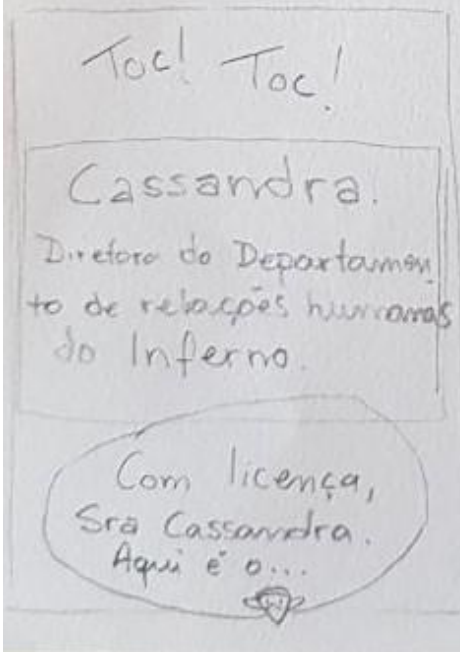 Toc! Toc!
Cassandra.
Diretora do Departamen
to de relações humanas
do Inferno.
Com licença,
Sra Cassandra.
Aqui é o...